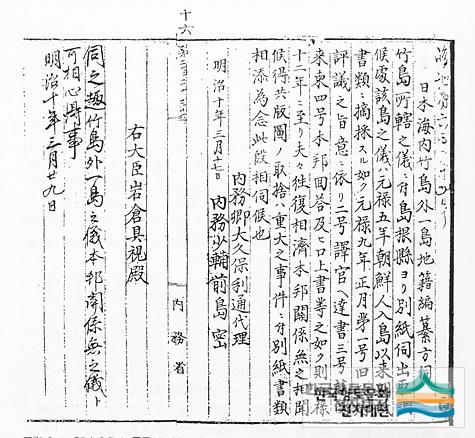 日本海内竹島外一島地籍編纂方伺
竹島所轄之儀ニ付島根縣ヨリ別紙伺出取
候處該島之儀ハ元禄五年朝鮮人入島以来
書類ニ摘採スル如ク元禄九年正月第一号旧
評議之旨意ニ依リ二号譯官ヘ達書三号
来柬四号本邦回答及ヒ口上書等之如ク則元禄
十二年ニ至リ夫々往復相濟本邦関係無之相聞
候得共版圖ノ取捨ハ重大之事件ニ付別紙書類
相添為念此段相伺候也
内務卿大久保利通代理
明治十年三月十七日 内務少輔前島密
内務省
十六
右大臣岩倉具視殿
伺之趣竹島外一島之儀本邦関係無之儀ト
可相心得事
明治十年三月廿九日
한국향토문화
전자대전